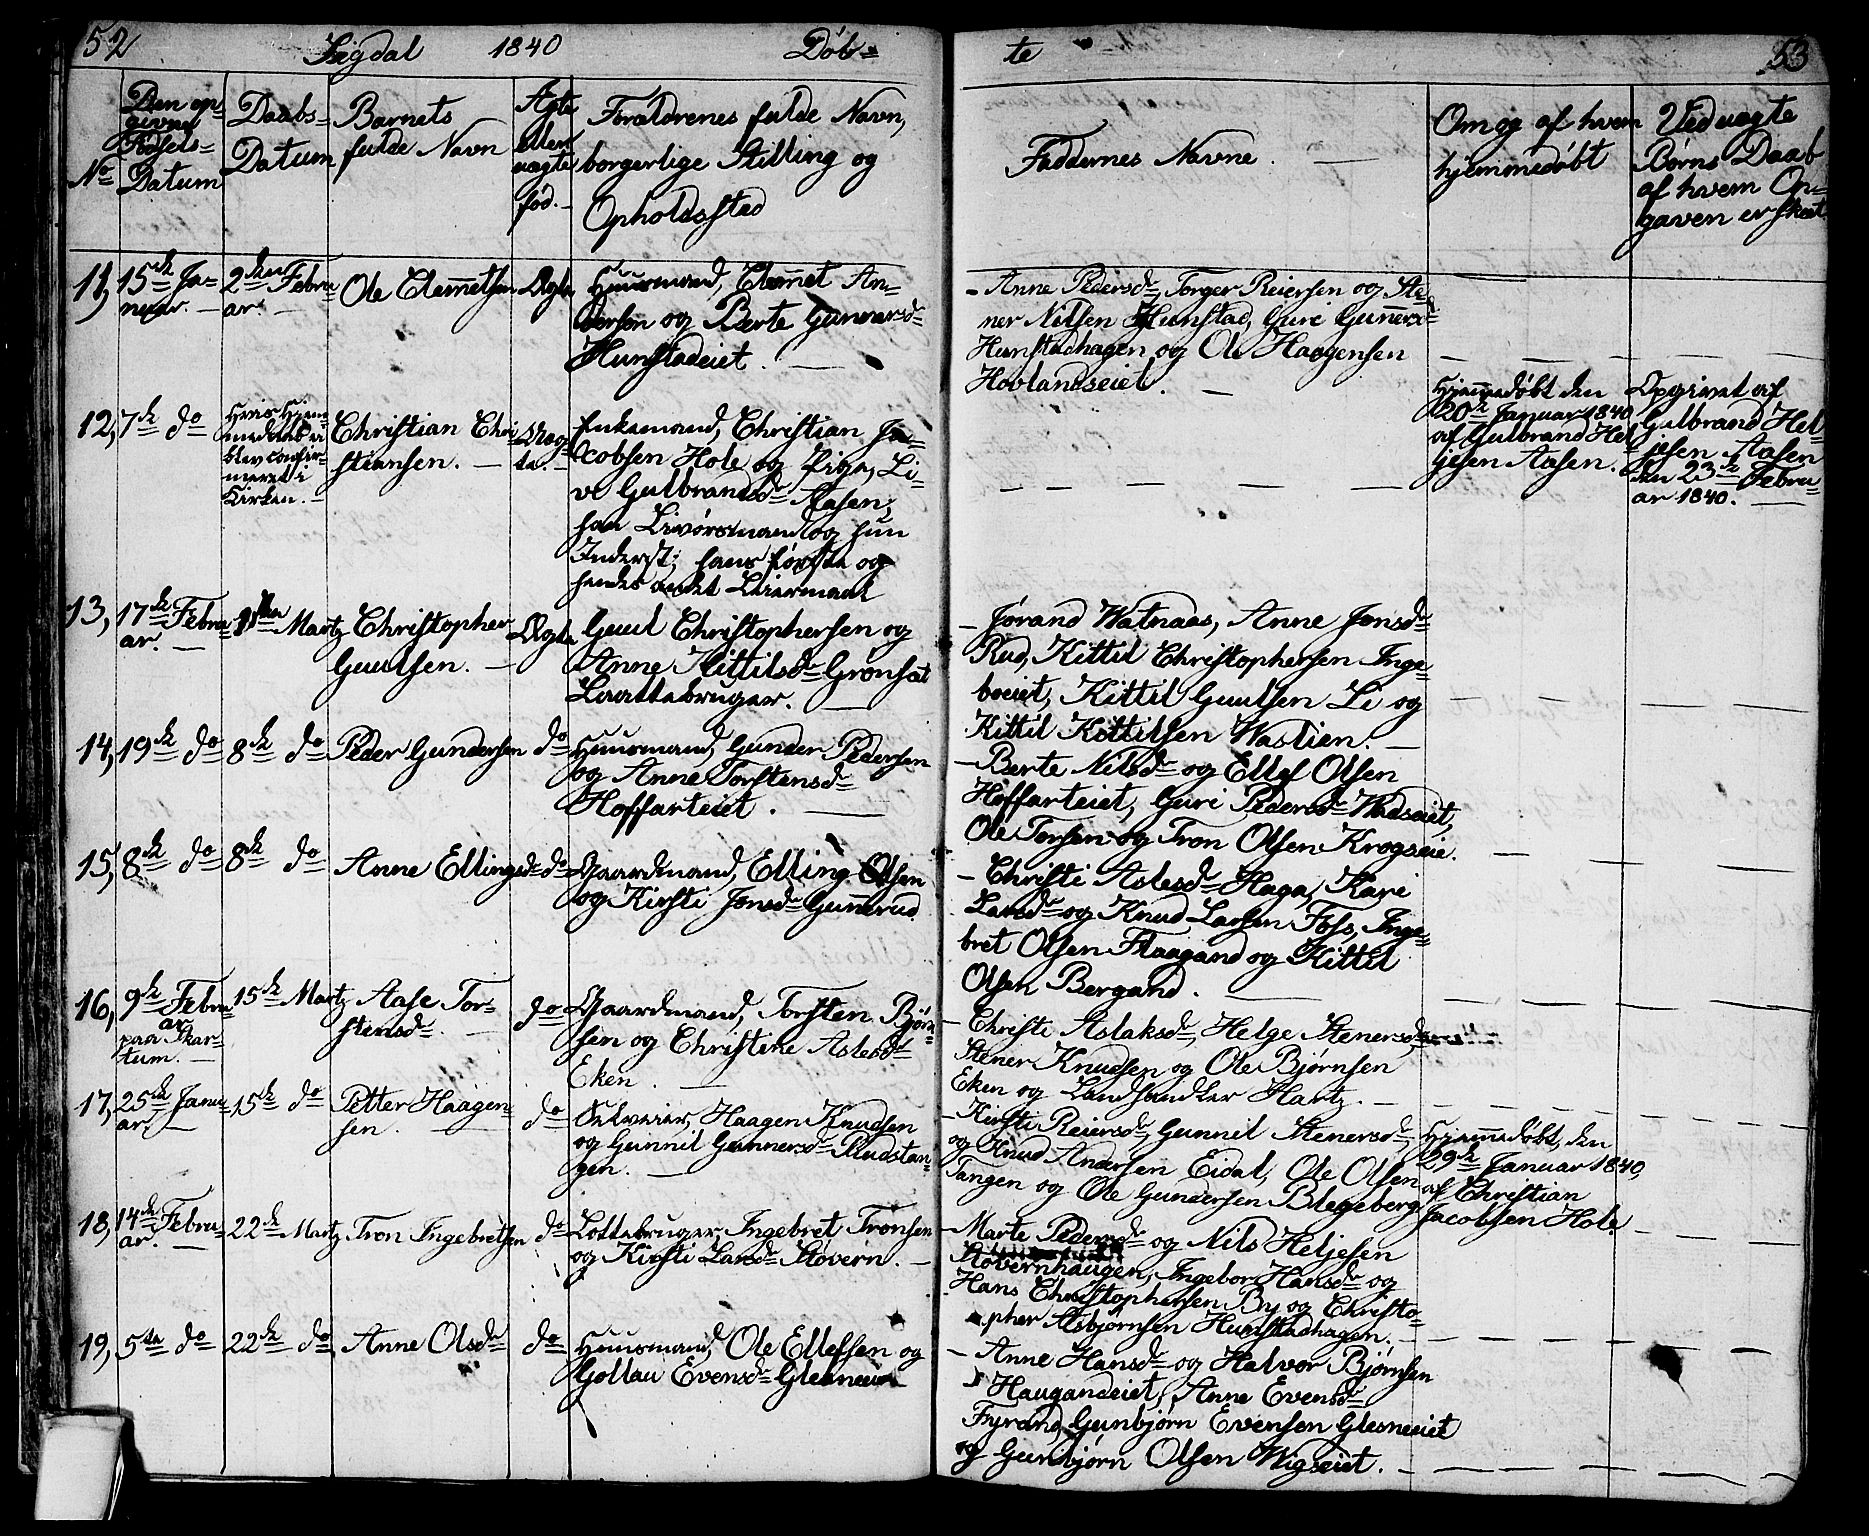 52 Sigdal 1840 Døb-
te 53
No
Den op-
givne
Fødsels-
Datum
Daabs-
Datum
Barnets
fulde Navn
Ægte
eller
uægte
fød.
Forældrenes fulde Navn,
borgerlige Stilling og
Opholdsstad
Faddernes Navne.
Om og af hvem
hjemmedøbt
Ved uægte
Børns Daab
af hvem Op-
gaven er skeet
11,
15de Ja-
nuar.
2den Febru-
ar.
Ole Clemetsen
Ægte
Huusmand, Clemet An-
dersen og Berte Gunnersdr
Hunstadeiet.
- Anne Pedersdr, Torger Reiersen og Ste-
ner Nilsen Hunstad, Gure Gunersdr
Hunstadhagen og Ole Haagensen
Hovlandseiet.
12,
7de do
Hvis Hjem-
medaab
blev confir-
meret i
Kirken.
Christian Chri-
stiansen.
Uæg-
te.
Enkemand, Christian Ja-
cobsen Hole og Pige, Li-
ve Gulbrandsdr Aasen,
han Livørsmand og hun
Inderst; hans første og
hendes andet Leiermaal
Hjemmedøbt den
20de Januar 1840
af Gulbrand Hel-
jesen Aasen.
Opgivet af
Gulbrand Hel-
jesen Aasen
den 23de Febru-
ar 1840.
13,
17de Febru-
ar.
1ste Martz
Christopher
Guulsen.
Ægte
Guul Christophersen og
Anne Kittilsdr Grønsæt
Laattebruger.
- Jørand Watnaas, Anne Jonsdr
Rud, Kittil Christophersen Inge-
boeiet, Kittil Guulsen Li og
Kittil Kittilsen Waslien.
14,
19de do
8de do
Peder Gundersen
do
Huusmand, Gunder Pedersen
og Anne Torstensdr
Hoffarteiet.
- Berte Nilsdr og Ellef Olsen
Hoffarteiet, Guri Pedersdr Wadseiet,
Ole Torsen og Tron Olsen Krogseie.
15,
8de do
8de do
Anne Ellingsdr
do
Gaardmand, Elling Olsen
og Kirsti Jonsdr Gunnerud
- Christi Aslesdr Haga, Kari
Larsdr og Knud Larsen Foss, Inge-
bret Olsen Flaagand og Kittil
Olsen Bergand.
16,
9de Febru-
ar
paa Skar-
tum.
15de Martz
Aase Tor-
stensdr
do
Gaardmand, Torsten Bjørn-
sen og Christine Aslesdr
Eken.
- Christi Aslaksdr, Helge Stenersdr
Stener Knudsen og Ole Bjørnsen
Eken og Landhandler Hartz.
17,
25de Janu-
ar.
15de do
Petter Haagen-
sen.
do
Selveier, Haagen Knudsen
og Gunnil Gunnersdr Rudstan-
gen.
- Kirsti Reiersdr, Gunnil Stenersdr
og Knud Andersen Eidal, Ole Olsen
Tangen og Ole Gundersen Blegeberg
Hjemmedøbt, den
29de Januar 1840,
af Christian
Jacobsen Hole.
18,
14de Febru-
ar.
22de Martz
Tron Ingebretsen
do
Lottebruger, Ingebret Tronsen
og Kirsti Larsdr Støvern.
- Marte Pedersdr og Nils Heljesen
Støvernhaugen, Ingebor Hansdr og
Hans Christophersen By og Christo-
pher Asbjørnsen Hunstadhagen.
19,
5te do
22de do
Anne Olsdr
do
Huusmand, Ole Ellefsen og
Gollau Evensdr
- Anne Hansdr og Halvor Bjørnsen
Haugandeiet, Anne Evensdr
Fyrand, Gunbjørn Evensen Glesneeiet
og Gunbjørn Olsen Wigseiet.